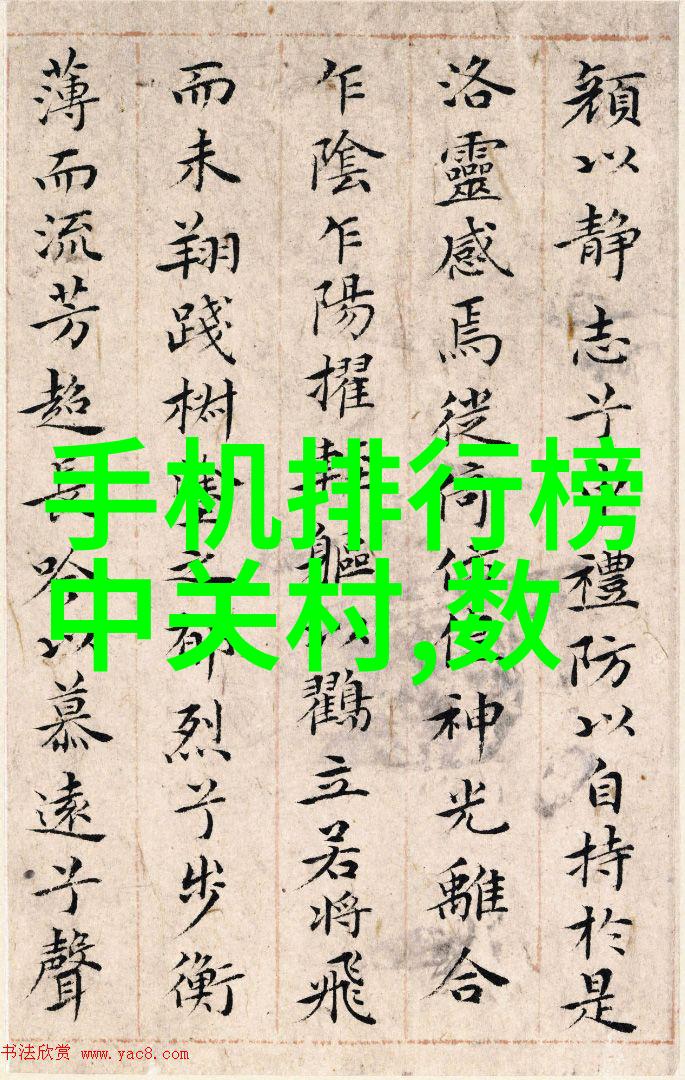 顔以静志兮禮防以自持於是
洛靈感焉徙倚神光離合
乍陰乍陽擢輕軀以鶴立若将飛
而未翔踐椒塗之郁烈兮步衡
薄而流芳超長吟以慕遠兮聲
手机排行榜
中关村,数
书法欣赏 www.yac8.com